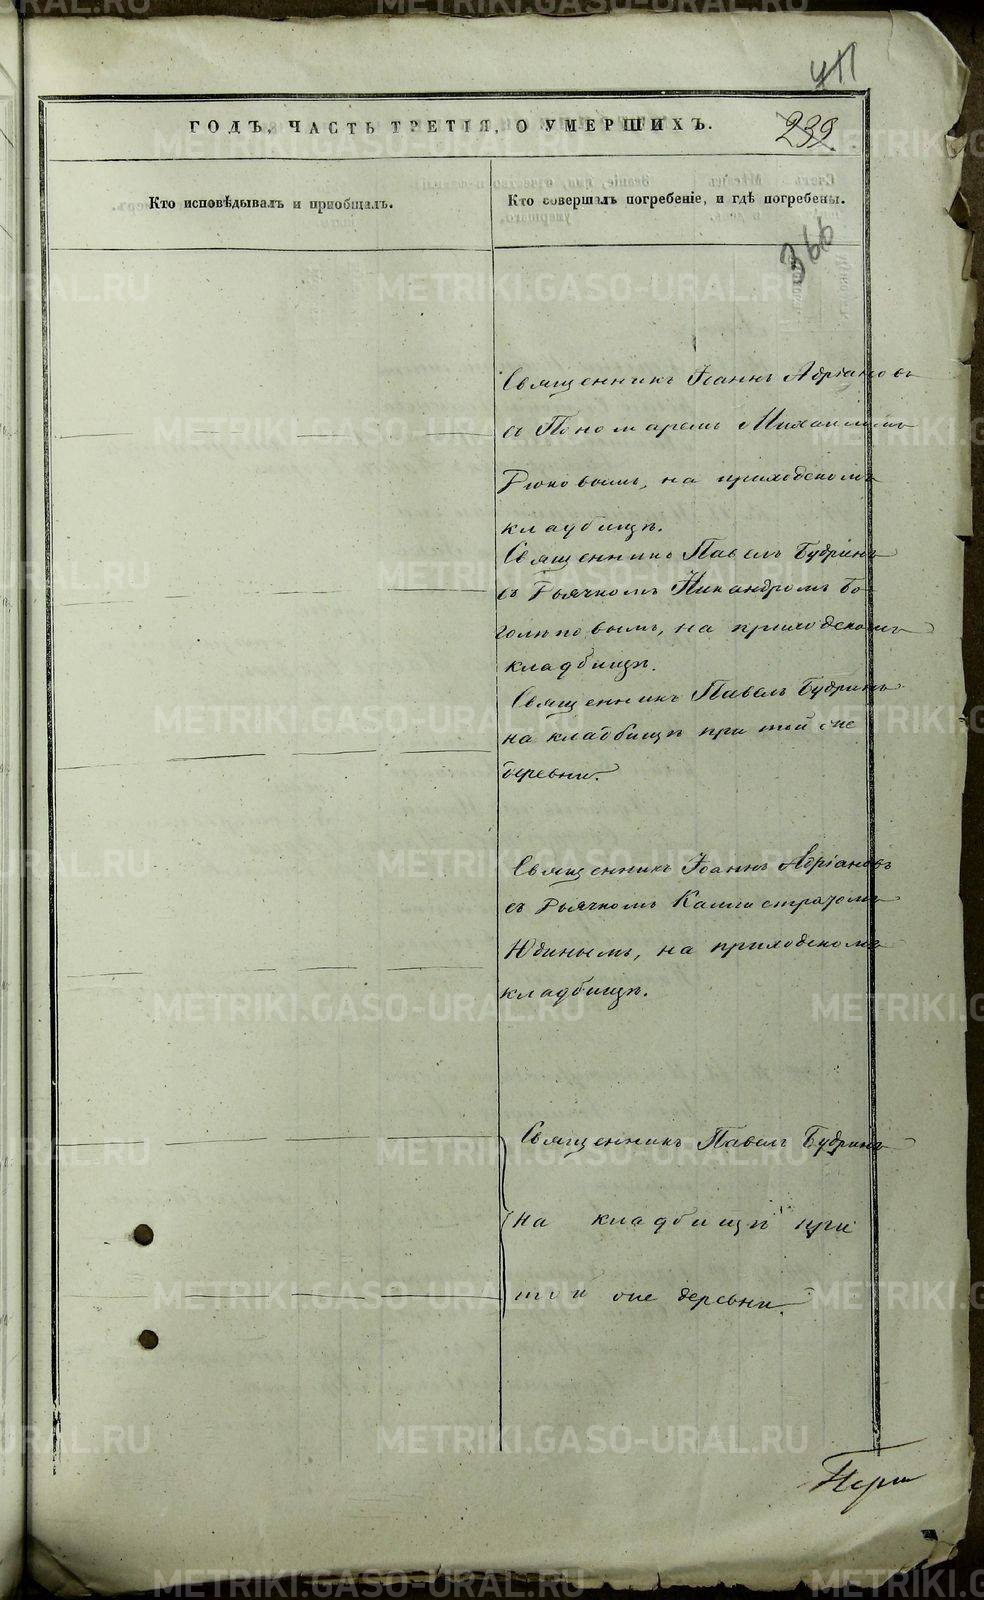 411
ГОДЪ, ЧАСТЬ ТРЕТІЯ, О УМЕРШИХЪ.
239
Кто исповѣдывалъ и пріобщалъ.
Кто совершалъ погребеніе, и гдѣ погребены.
366
Священникъ Іоаннъ Адріановъ
съ Пономаремъ Михаиломъ
на приходскомъ
кладбищѣ.
Священникъ Павелъ Будринъ
съ Дьячкомъ Никандромъ Бо-
голѣповымъ, на приходскомъ
кладбищѣ.
Священникъ Павелъ Будринъ
на кладбищѣ при той же
деревни.
Священникъ Іоаннъ Адріановъ
съ Дьячкомъ Каллистратомъ
Юдинымъ, на приходскомъ
кладбищѣ.
Священникъ Павелъ Будринъ
на кладбищѣ при
той же деревни.
METRIKI.GASO-URAL.RU